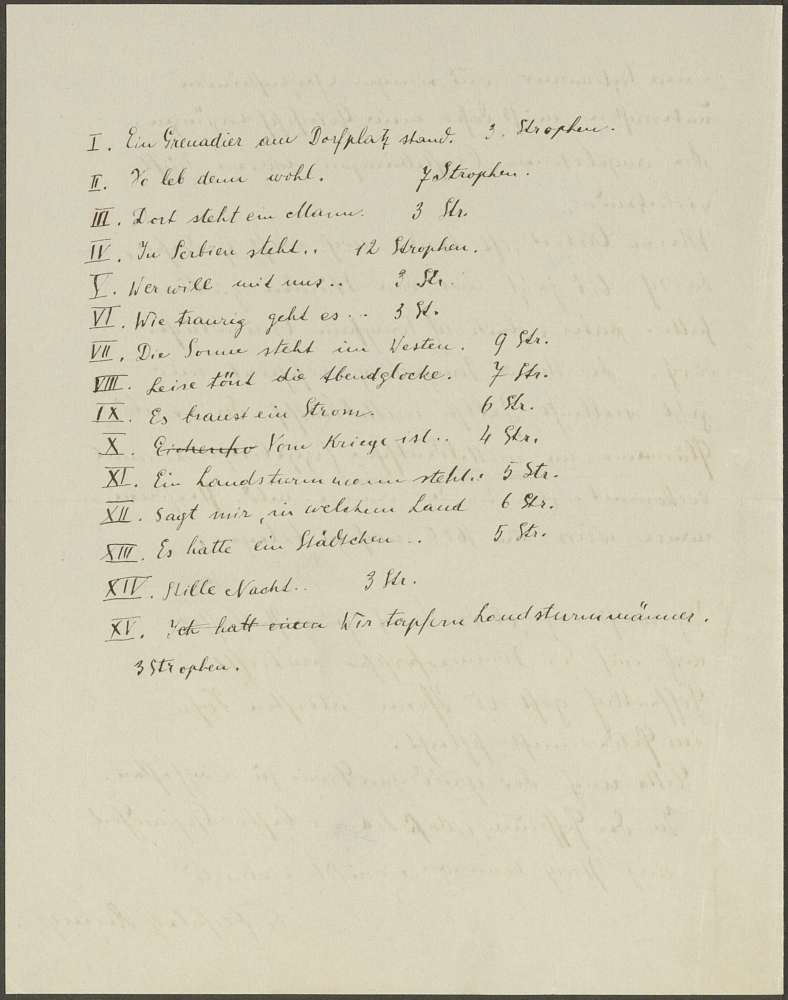 I. Ein Grenadier am Dorfplatz stand. 3. Strophen.
II. So leb denn wohl. 7 Strophen.
III. Dort steht ein Mann. 3 Str.
IV. In Serbien steht.. 12 Strophen.
V. Wer will mit uns.. 3 Str.
VI. Wie traurig geht es... 3 St.
VII. Die Sonne steht im Westen. 9 Str.
VIII. Leise tönt die Abendglocke. 7 Str.
IX. Es braust ein Strom. 6 Str.
X. Vom Kriege ist.. 4 Str.
XI. Ein Landsturmmann steht.. 5 Str.
XII. Sagt mir, in welchem Land 6 Str.
XIII. Es hatte ein Städtchen .. 5 Str.
XIV. Stille Nacht.. 3 Str.
XV. Ich hatt einen Wir tapfern Landsturmmänner.
3 Strophen.